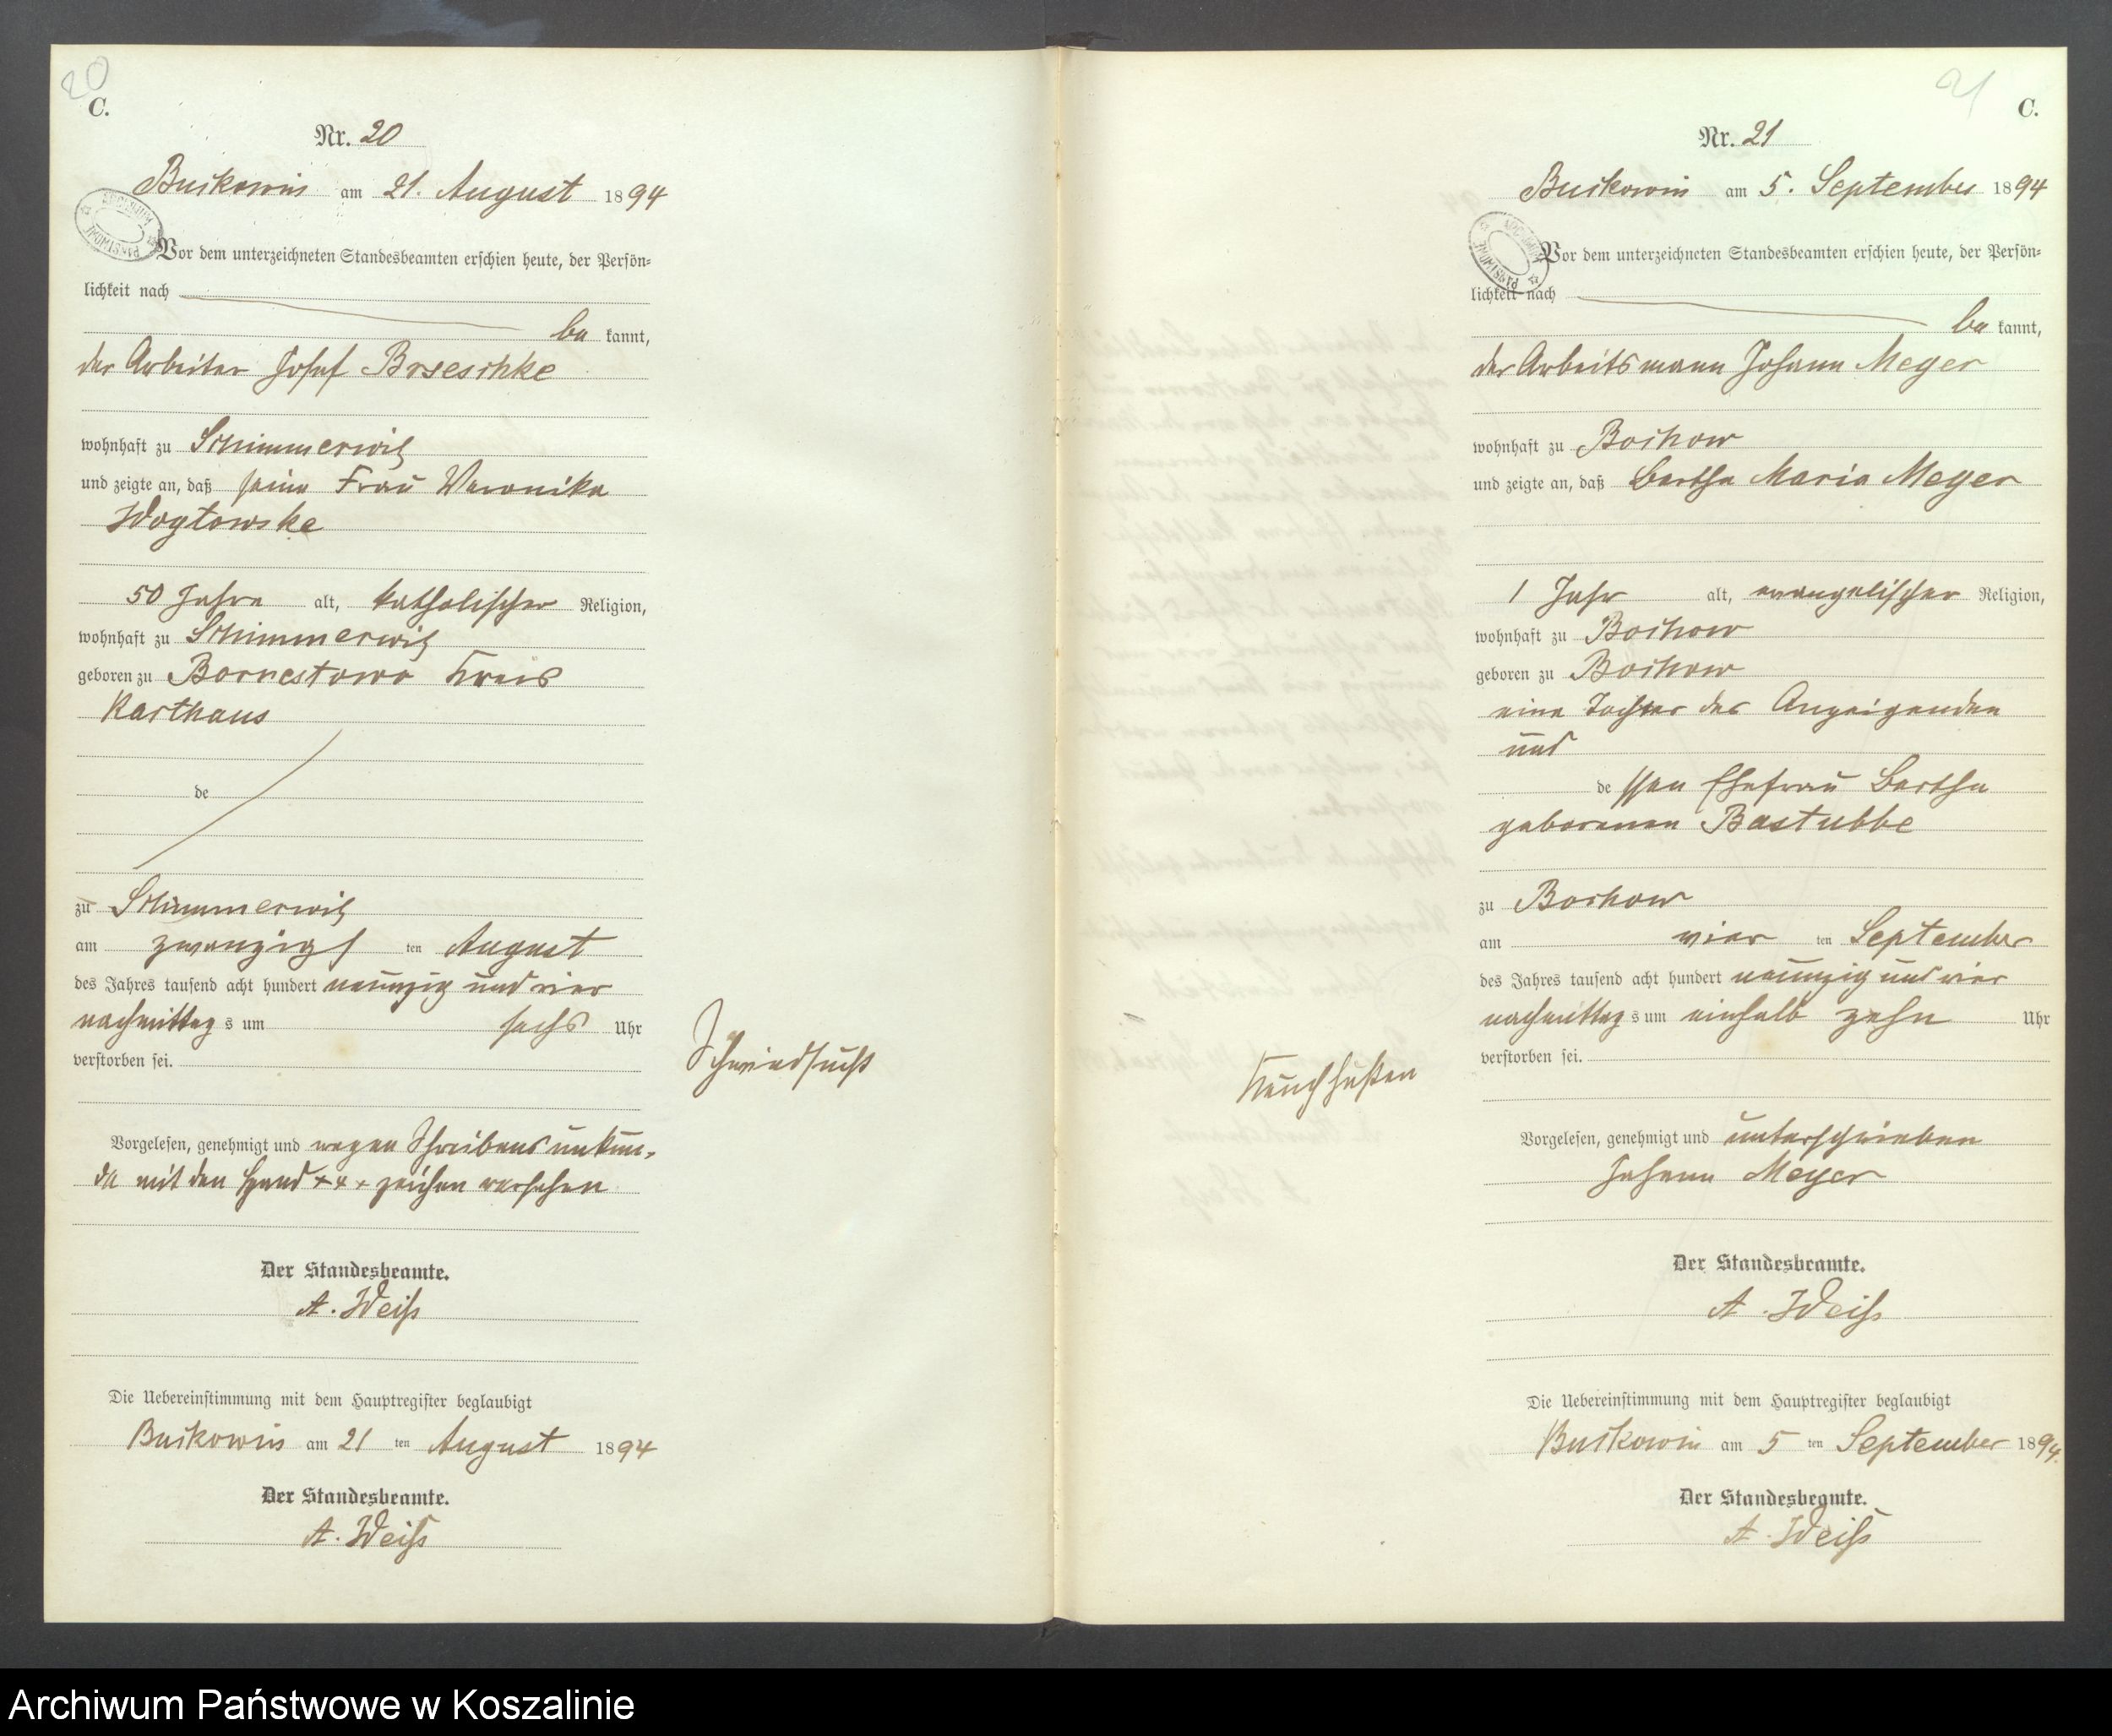 20
C.
Nr. 20
Buckowin am 21. August 1894
Vor dem unterzeichneten Standesbeamten erschien heute, der Persön=
lichkeit nach
be kannt,
der Arbeiter Josef Brseschke
wohnhaft zu Schimmerwitz
und zeigte an, daß seine Frau Veronika
Woytowske
50 Jahre alt, katholischer Religion,
wohnhaft zu Schimmerwitz
geboren zu Kreis
Karthaus
de
zu Schimmerwitz
am zwanzigs ten August
des Jahres tausend acht hundert neunzig und vier
nachmittag s um sechs Uhr
verstorben sei.
Schwindsucht
Vorgelesen, genehmigt und wegen Schreibensunkun-
de mit den Hand +++ zeichen versehen
Der Standesbeamte.
A. Weiß
Die Uebereinstimmung mit dem Hauptregister beglaubigt
Buckowin am 21 ten August 1894
Der Standesbeamte.
A. Weiß
21
C.
Nr. 21
Buckowin am 5. September 1894
Vor dem unterzeichneten Standesbeamten erschien heute, der Persön=
lichkeit nach
be kannt,
der Arbeitsmann Johann Meyer
wohnhaft zu Bochow
und zeigte an, daß Bertha Maria Meyer
1 Jahr alt, evangelischer Religion,
wohnhaft zu Bochow
geboren zu Bochow
eine Tochter des Anzeigenden
und
de ssen Ehefrau Bertha
geborenen Bastubbe
zu Bochow
am vier ten September
des Jahres tausend acht hundert neunzig und vier
nachmittag s um einhalb zehn Uhr
verstorben sei.
Keuchhusten
Vorgelesen, genehmigt und unterschrieben
Johann Meyer
Der Standesbeamte.
A. Weiß
Die Uebereinstimmung mit dem Hauptregister beglaubigt
Buckowin am 5 ten September 1894.
Der Standesbeamte.
A. Weiß
Archiwum Państwowe w Koszalinie